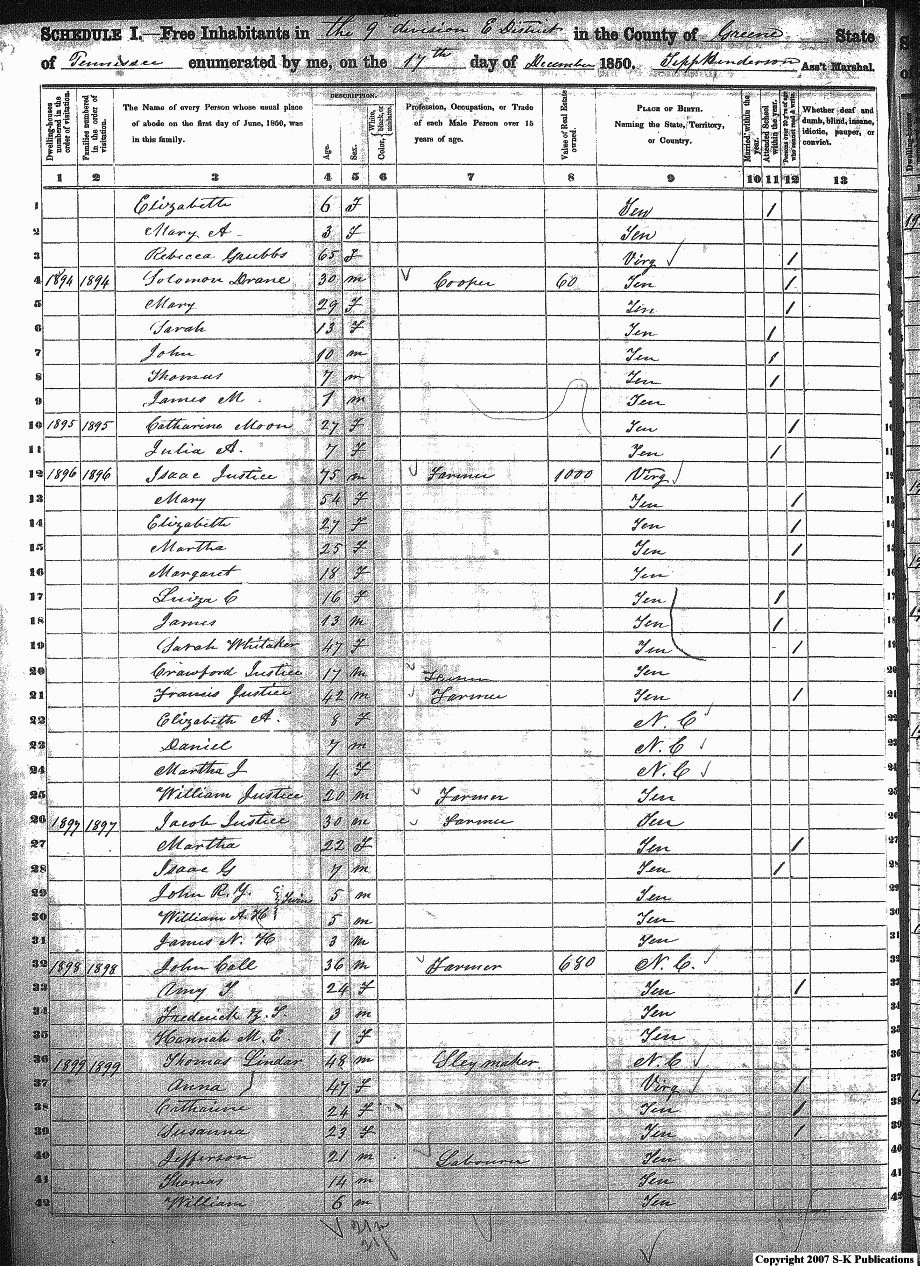 SCHEDULE I.—Free Inhabitants in the 9 division E District in the County of Greene State
of Tennissee enumerated by me, on the 17th day of December 1850. Ass't Marshal.
DESCRIPTION.
Dwelling-houses numbered in the order of visitation.
Families numbered in the order of visitation.
The Name of every Person whose usual place of abode on the first day of June, 1850, was in this family.
Age.
Sex.
Color, White, black, or mulatto.
Profession, Occupation, or Trade of each Male Person over 15 years of age.
Value of Real Estate owned.
PLACE OF BIRTH.
Naming the State, Territory, or Country.
Married within the year.
Attended School within the year.
Persons over 20 y'rs of age who cannot read & write.
Whether deaf and dumb, blind, insane, idiotic, pauper, or convict.
1 2 3 4 5 6 7 8 9 10 11 12 13
1 Elizabeth 6 F Ten / 1
2 Mary A 3 F Ten 2
3 Rebecca Grubbs 65 F Virg / 3
4 1894 1894 Solomon Drane 30 m Cooper 60 Ten / 4
5 Mary 29 F Ten / 5
6 Sarah 13 F Ten / 6
7 John 10 m Ten / 7
8 Thomas 7 m Ten / 8
9 James M. 1 m Ten 9
10 1895 1895 Catharine Moon 27 F Ten / 10
11 Julia A. 7 F Ten / 11
12 1896 1896 Isaac Justice 75 m Farmer 1000 Virg 12
13 Mary 54 F Ten / 13
14 Elizabeth 27 F Ten / 14
15 Martha 25 F Ten / 15
16 Margaret 18 F Ten 16
17 Luiza C 16 F Ten / 17
18 James 13 m Ten / 18
19 Sarah Whitaker 47 F Ten / 19
20 Crawford Justice 17 m Farmer Ten 20
21 Francis Justice 42 m Farmer Ten / 21
22 Elizabeth A. 8 F N. C 22
23 Daniel 7 m N. C 23
24 Martha J 4 F N. C 24
25 William Justice 20 m Farmer Ten 25
26 1897 1897 Jacob Justice 30 m Farmer Ten 26
27 Martha 22 F Ten / 27
28 Isaac G 7 m Ten / 28
29 John R. Y. Twins 5 m Ten 29
30 William A. H 5 m Ten 30
31 James N. H 3 m Ten 31
32 1898 1898 John Call 36 m Farmer 680 N. C. 32
33 Amy T 24 F Ten / 33
34 Frederick 3 m Ten 34
35 Hannah M. E. 1 F Ten 35
36 1899 1899 Thomas Lindar 48 m Sley maker N. C 36
37 Anna 47 F Virg / 37
38 Catharine 24 F Ten / 38
39 Susanna 23 F Ten / 39
40 Jefferson 21 m Labourer Ten 40
41 Thomas 14 m Ten 41
42 William 6 m Ten 42
Copyright 2007 S-K Publications